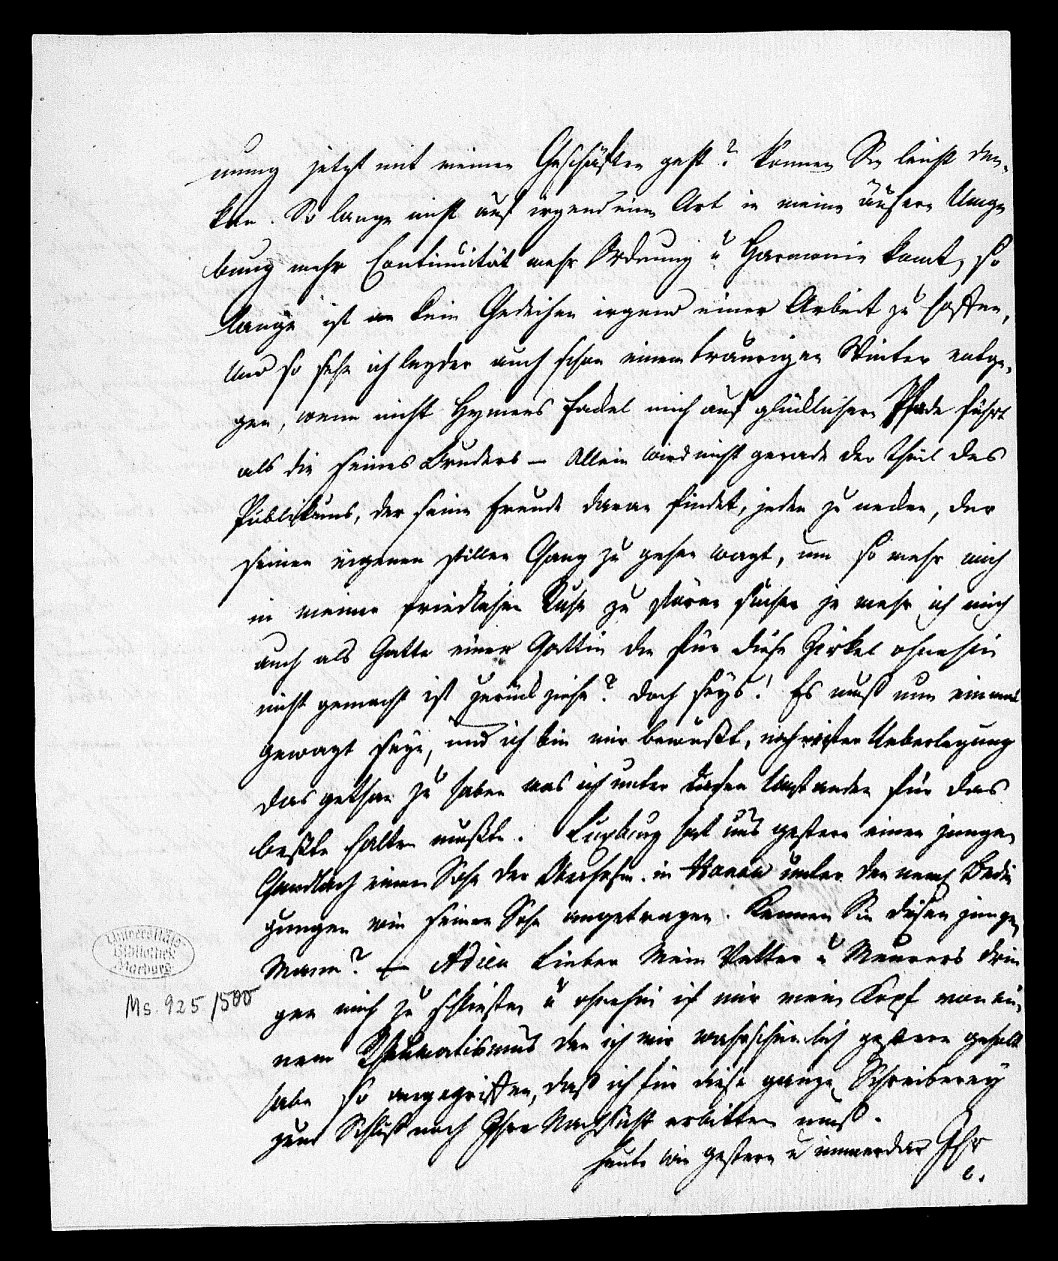 nung jetzt mit meinen Geschäften geht? können Sie leicht den-
ken. So lange nicht auf irgend eine Art in meine äußere Umge
bung mehr Continuität mehr Ordnung u Harmonie komt, so
lange ist an kein Gedeihen irgend einer Arbeit zu hoffen,
Und so sehe ich leyder auch schon einem traurigen Winter entge-
gen, wenn nicht Hymens Fackel mich auf glücklichere Pfade führt
als die seines Bruders – Allein wird nicht gerade der Theil des
Publikums, der seine Freude daran findet, jeden zu necken, der
seinen eigenen stillen Gang zu gehen wagt, um so mehr mich
in meiner friedlichen Ruhe zu stören suchen je mehr ich mich
auch als Gatte einer Gattin die für diese Zirkel ohnehin
nicht gemacht ist zurückziehe? Doch seys! Es muß nun einmal
gewagt seyn, und ich bin mir bewußt, nach Ueberlegung
das gethan zu haben was ich unter diesen Umständen für das
beßte halten mußte. hat uns gestern einen jungen
einen Sohn des in Hanau unter den nemlich Bedin
gungen wie seinen Sohn angetragen. Kennen Sie diesen jungen
Mann? – Adieu Lieber Mein Vetter u Meurers drin
gen mich zu schließen u ohnehin ist mir mein Kopf von ei-
nem Rheumatismus den ich mir wahrscheinlich gestern geholt
habe so angegriffen, daß ich für diese ganze Schreiberey
zum Schluß noch Ihre Nachsicht erbitten muß.
heute wie gestern u immerdar Ihr
C.
Universitäts
Bibliothek
Marburg
Ms. 925/500